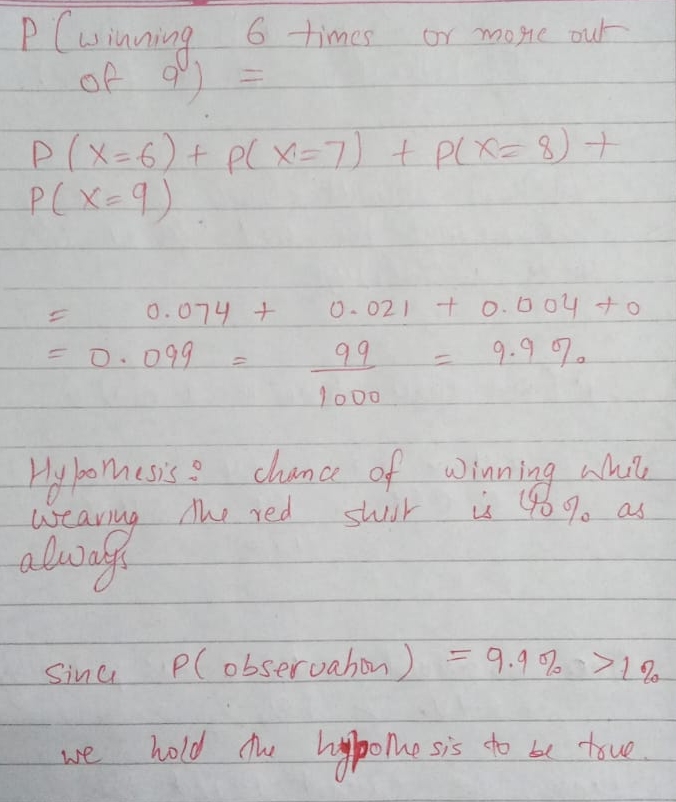 P(winning 6 times or more out
of 9) =
P(X=6) + P(X=7) + P(X=8) +
P(X=9)
= 0.074 + 0.021 + 0.004 + 0
= 0.099 = 99/1000 = 9.9%
Hypothesis: chance of winning while
wearing the red shirt is 40% as
always
Since P(observation) = 9.9% >1%
we hold the hypothesis to be true.